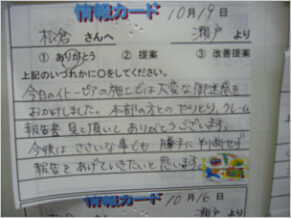 情報カード 10月19日
松倉 さんへ 瀬戸 より
①ありがとう ②提案 ③改善提案
上記のいづれかに○をしてください。
今月のイトーピアの施工では大変な御迷惑を
おかけしました。本部の方とのやりとり、クレーム
報告書 見て頂いて ありがとうございます。
今後は ささいな事でも 勝手に判断せず
報告をあげていきたいと思います。
情報カード 10月16日
さんへ 瀬戸 より